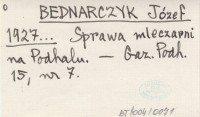 BEDNARCZYK Józef
1927... Sprawa mleczarni
na Podhalu. — Gaz. Podh.
15, nr 7.